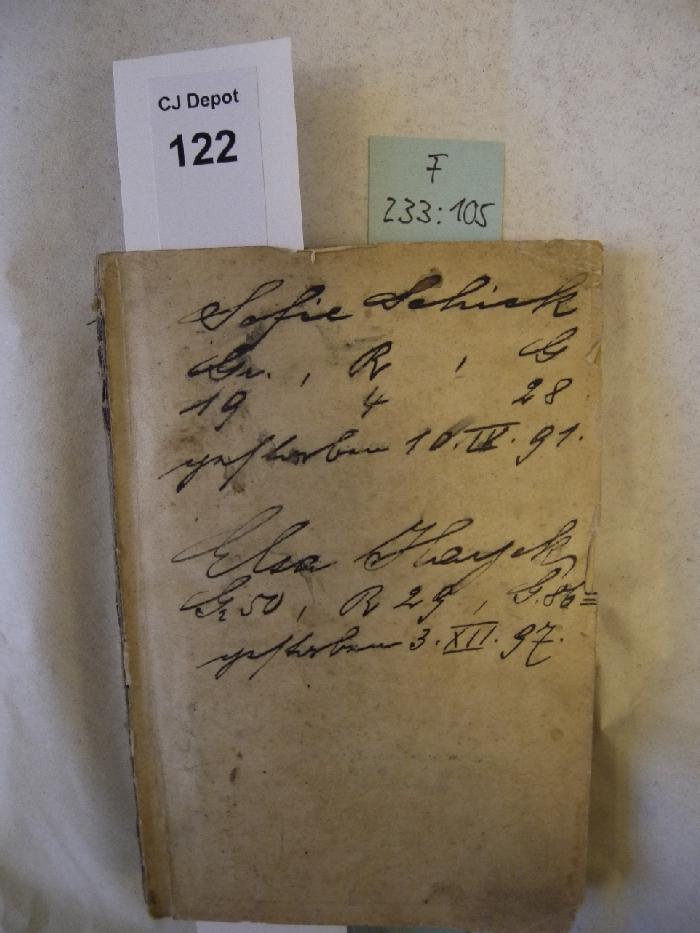 CJ Depot
122
F
233:105
Sofie Schick
Gr. , R , G
19 4 28
gestorben 10.IV.91.
Elsa Hayek
Gr 50 , R 29 , G. 86=
gestorben 3.XII.97.